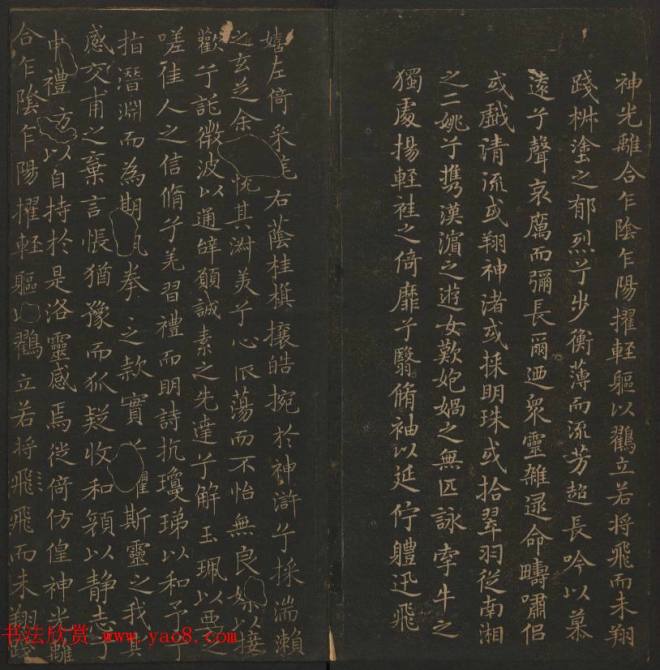 神光離合乍陰乍陽擢輕軀以鶴立若將飛而未翔
踐椒塗之郁烈兮步衡薄而流芳超長吟以慕
遠兮聲哀厲而彌長爾迺衆靈雜遝命疇嘯侶
或戲清流或翔神渚或採明珠或拾翠羽從南湘
之二姚兮攜漢濱之遊女歎匏媧之無匹詠牽牛之
獨處揚輕袿之倚靡兮翳脩袖以延佇軆迅飛
嬉左倚采旄右蔭桂棋攘皓捥於神滸兮採湍瀨
之玄芝余悅其淑美兮心振蕩而不怡無良媒以接
歡兮託微波以通辭願誠素之先達兮解玉珮以要之
嗟佳人之信脩兮羌習禮而明詩抗瓊珶以和予兮
指潛淵而為期執拳之款實兮懼斯靈之我欺
感交甫之棄言悵猶豫而狐疑收和顏以静志兮
申禮防以自持於是洛靈感焉徙倚仿偟神光離
合乍陰乍陽擢輕軀以鶴立若將飛飛而未翔踐
书法欣赏 www.yac8.com